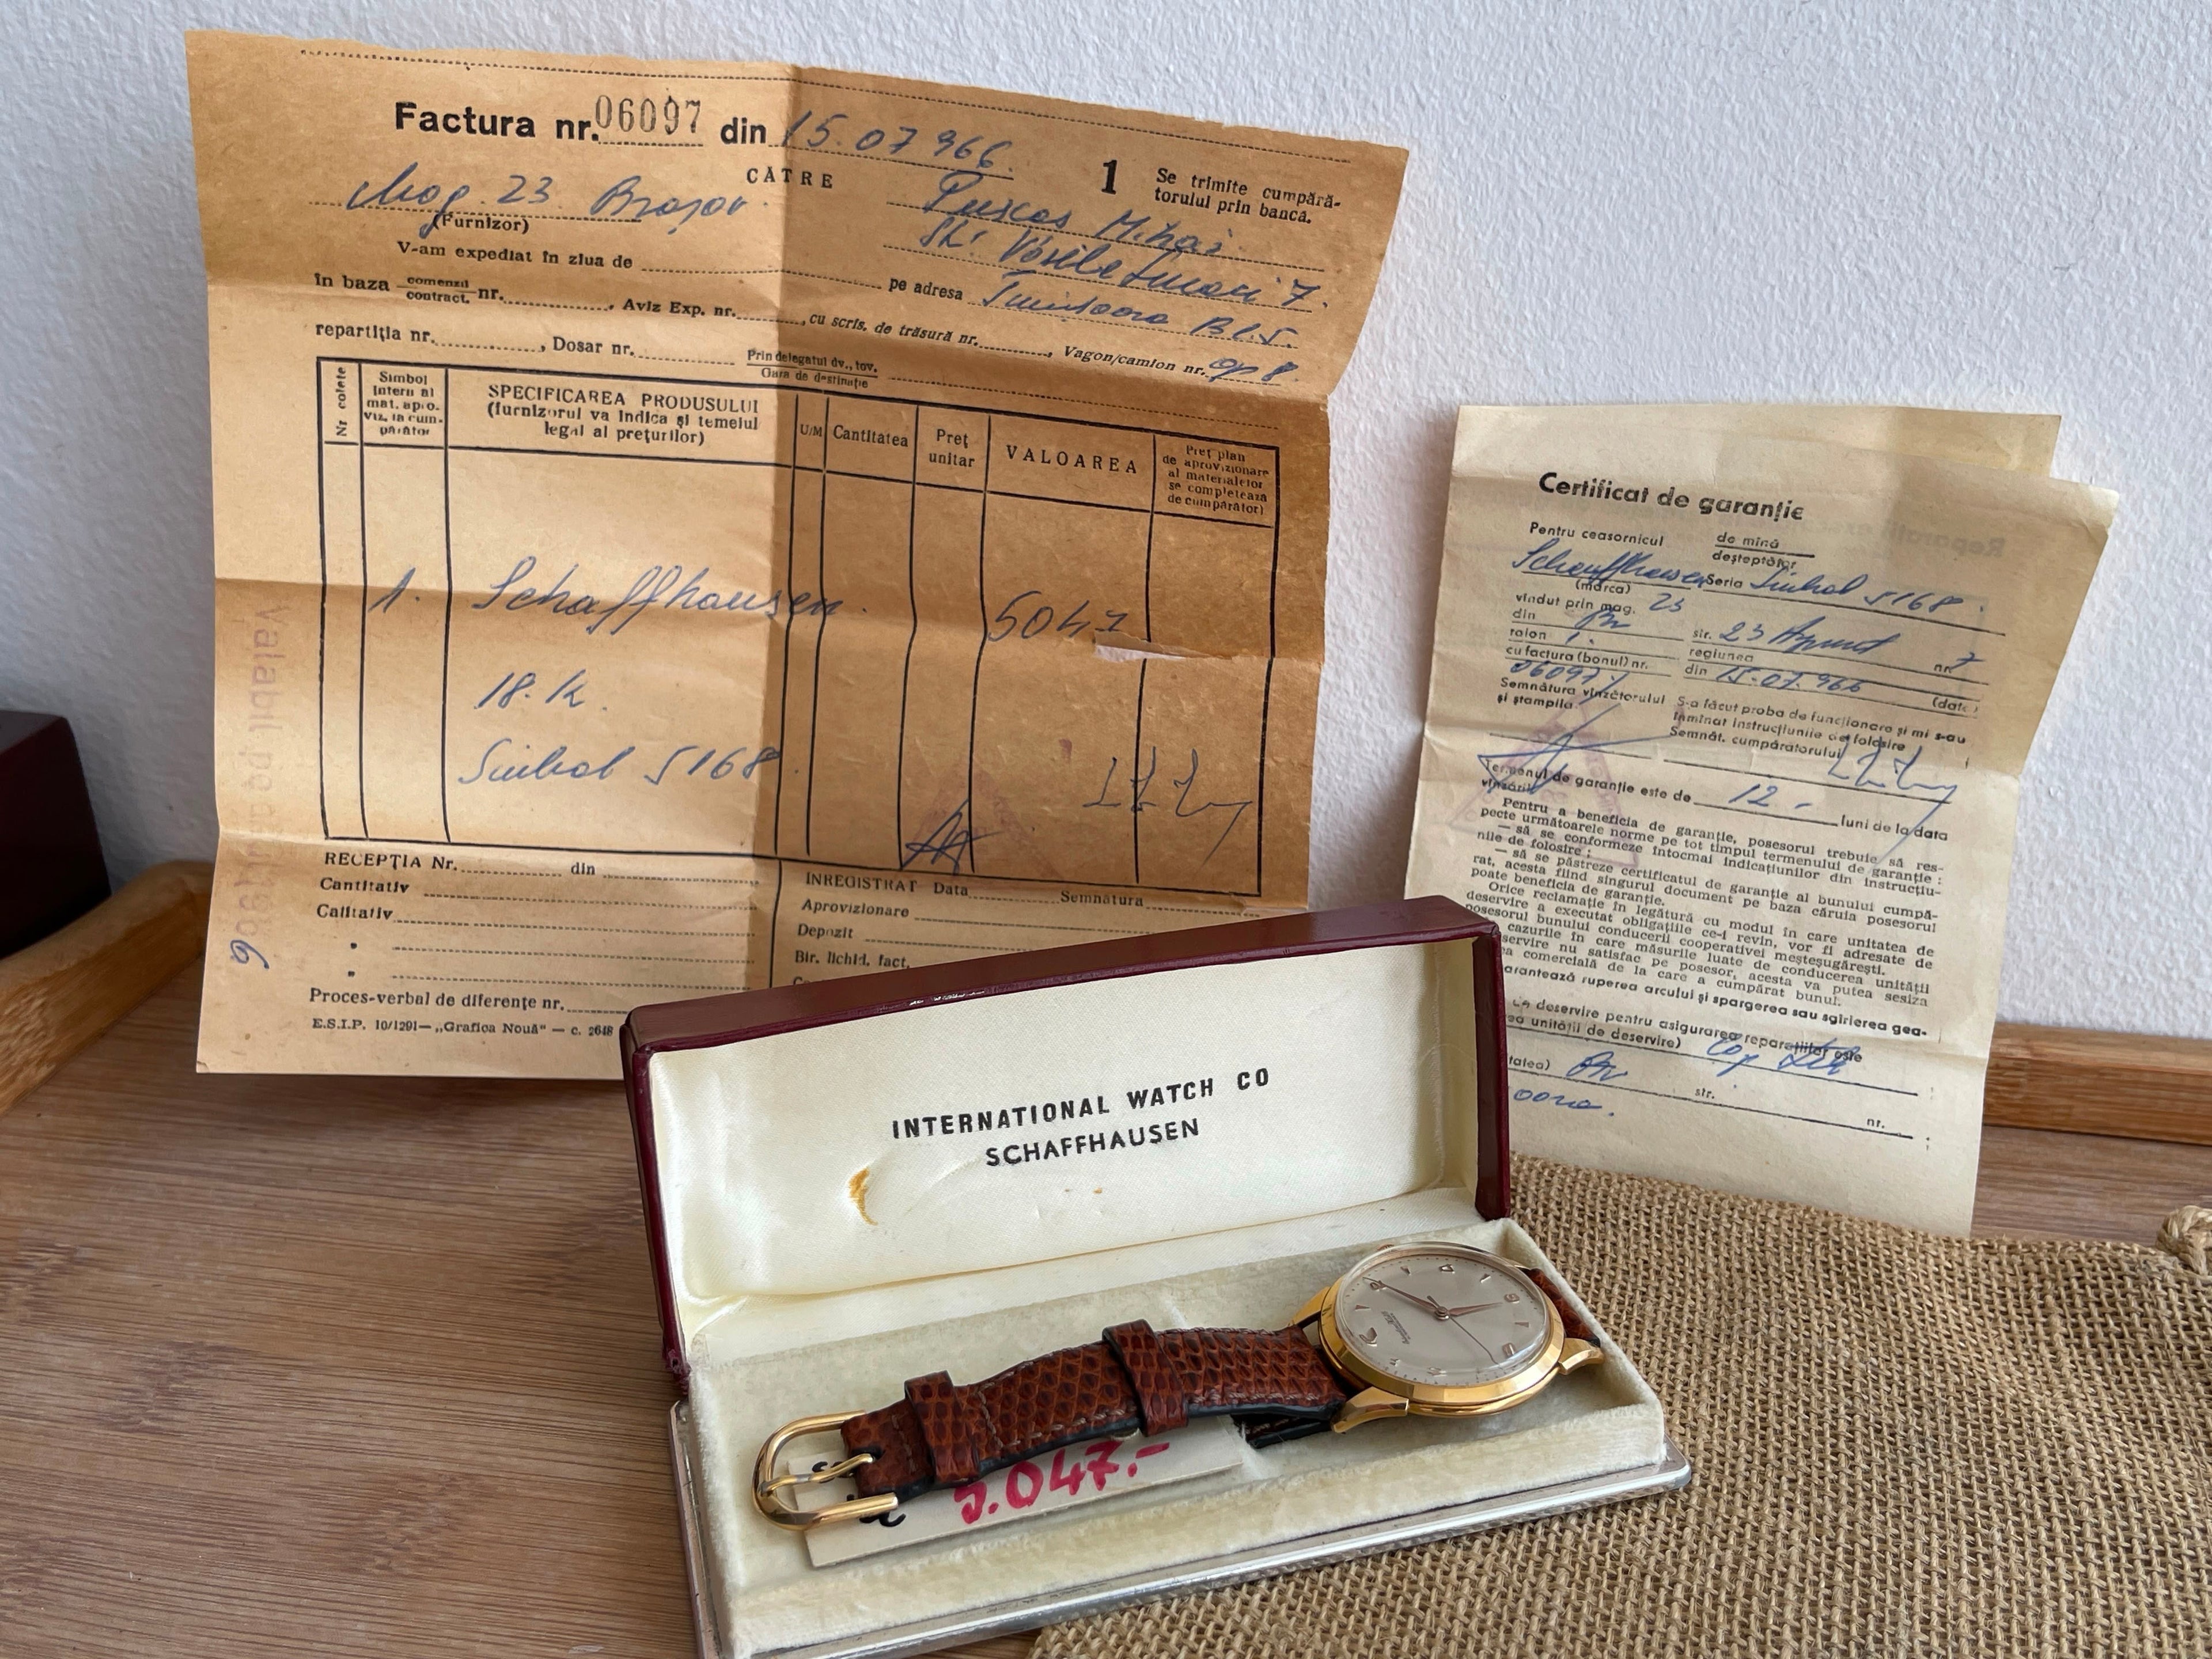 Factura nr. 06097 din 15.07 966.
CĂTRE
1
Se trimite cumpără-
torului prin bancă.
Mag. 23 Brașov
(Furnizor)
Puscas Mihai
Str. Vasile Lucaci 7.
V-am expediat în ziua de
pe adresa Timișoara Bl.5.
în baza comenzii nr. , Aviz Exp. nr. , cu scris. de trăsură nr. , Vagon/camion nr. ap 8.
contract.
repartiția nr. , Dosar nr. Prin delegatul dv., tov.
Gara de destinație
Nr colete
Simbol
intern al
mat. apro-
viz. la cum-
părător
SPECIFICAREA PRODUSULUI
(furnizorul va indica și temeiul
legal al prețurilor)
U/M
Cantitatea
Preț
unitar
VALOAREA
Preț plan
de aprovizionare
al materialelor
se completează
de cumpărător)
1. Schaffhausen. 5047
18. K.
Simbol 5168.
RECEPȚIA Nr. din
Cantitativ
Calitativ
"
"
Proces-verbal de diferențe nr.
E.S.I.P. 10/1291— „Grafica Nouă" — c. 2648
INREGISTRAT Data Semnătura
Aprovizionare
Depozit
Bir. lichid. fact.
Valabil
6
Certificat de garanție
Pentru ceasornicul de mînă
deșteptător
Schaffhausen Seria Simbol 5168.
(marca)
vîndut prin mag. 23
din Bv str. 23 August nr. 7
raion 1. regiunea
cu factura (bonul) nr. din 15.07.966
06097 (data)
Semnătura vînzătorului
și ștampila
S-a făcut proba de funcționare și mi s-au
înmînat instrucțiunile de folosire
Semnăt. cumpărătorului
Termenul de garanție este de 12 - luni de la data
vînzării
Pentru a beneficia de garanție, posesorul trebuie să res-
pecte următoarele norme pe tot timpul termenului de garanție :
— să se conformeze întocmai indicațiunilor din instrucțiu-
nile de folosire ;
— să se păstreze certificatul de garanție al bunului cumpă-
rat, acesta fiind singurul document pe baza căruia posesorul
poate beneficia de garanție.
Orice reclamație în legătură cu modul în care unitatea de
deservire a executat obligațiile ce-i revin, vor fi adresate de
posesorul bunului conducerii cooperativei meșteșugărești.
cazurile în care măsurile luate de conducerea unității
servire nu satisfac pe posesor, acesta va putea sesiza
comercială de la care a cumpărat bunul.
garantează ruperea arcului și spargerea sau sgîrierea gea-
de deservire pentru asigurarea reparațiilor este
unității de deservire)
Bv str.
nr.
INTERNATIONAL WATCH CO
SCHAFFHAUSEN
5.047.-